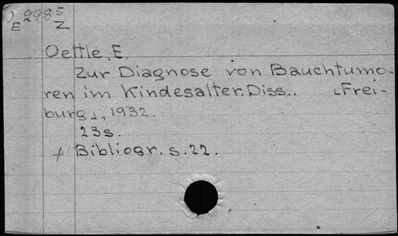 Oettle, E.
Zur Diagnose von Bauchtumo-
ren im Kindesalter. Diss.. ⌞Frei-
burg⌟, 1932.
23s.
Bibliogr. s. 22.